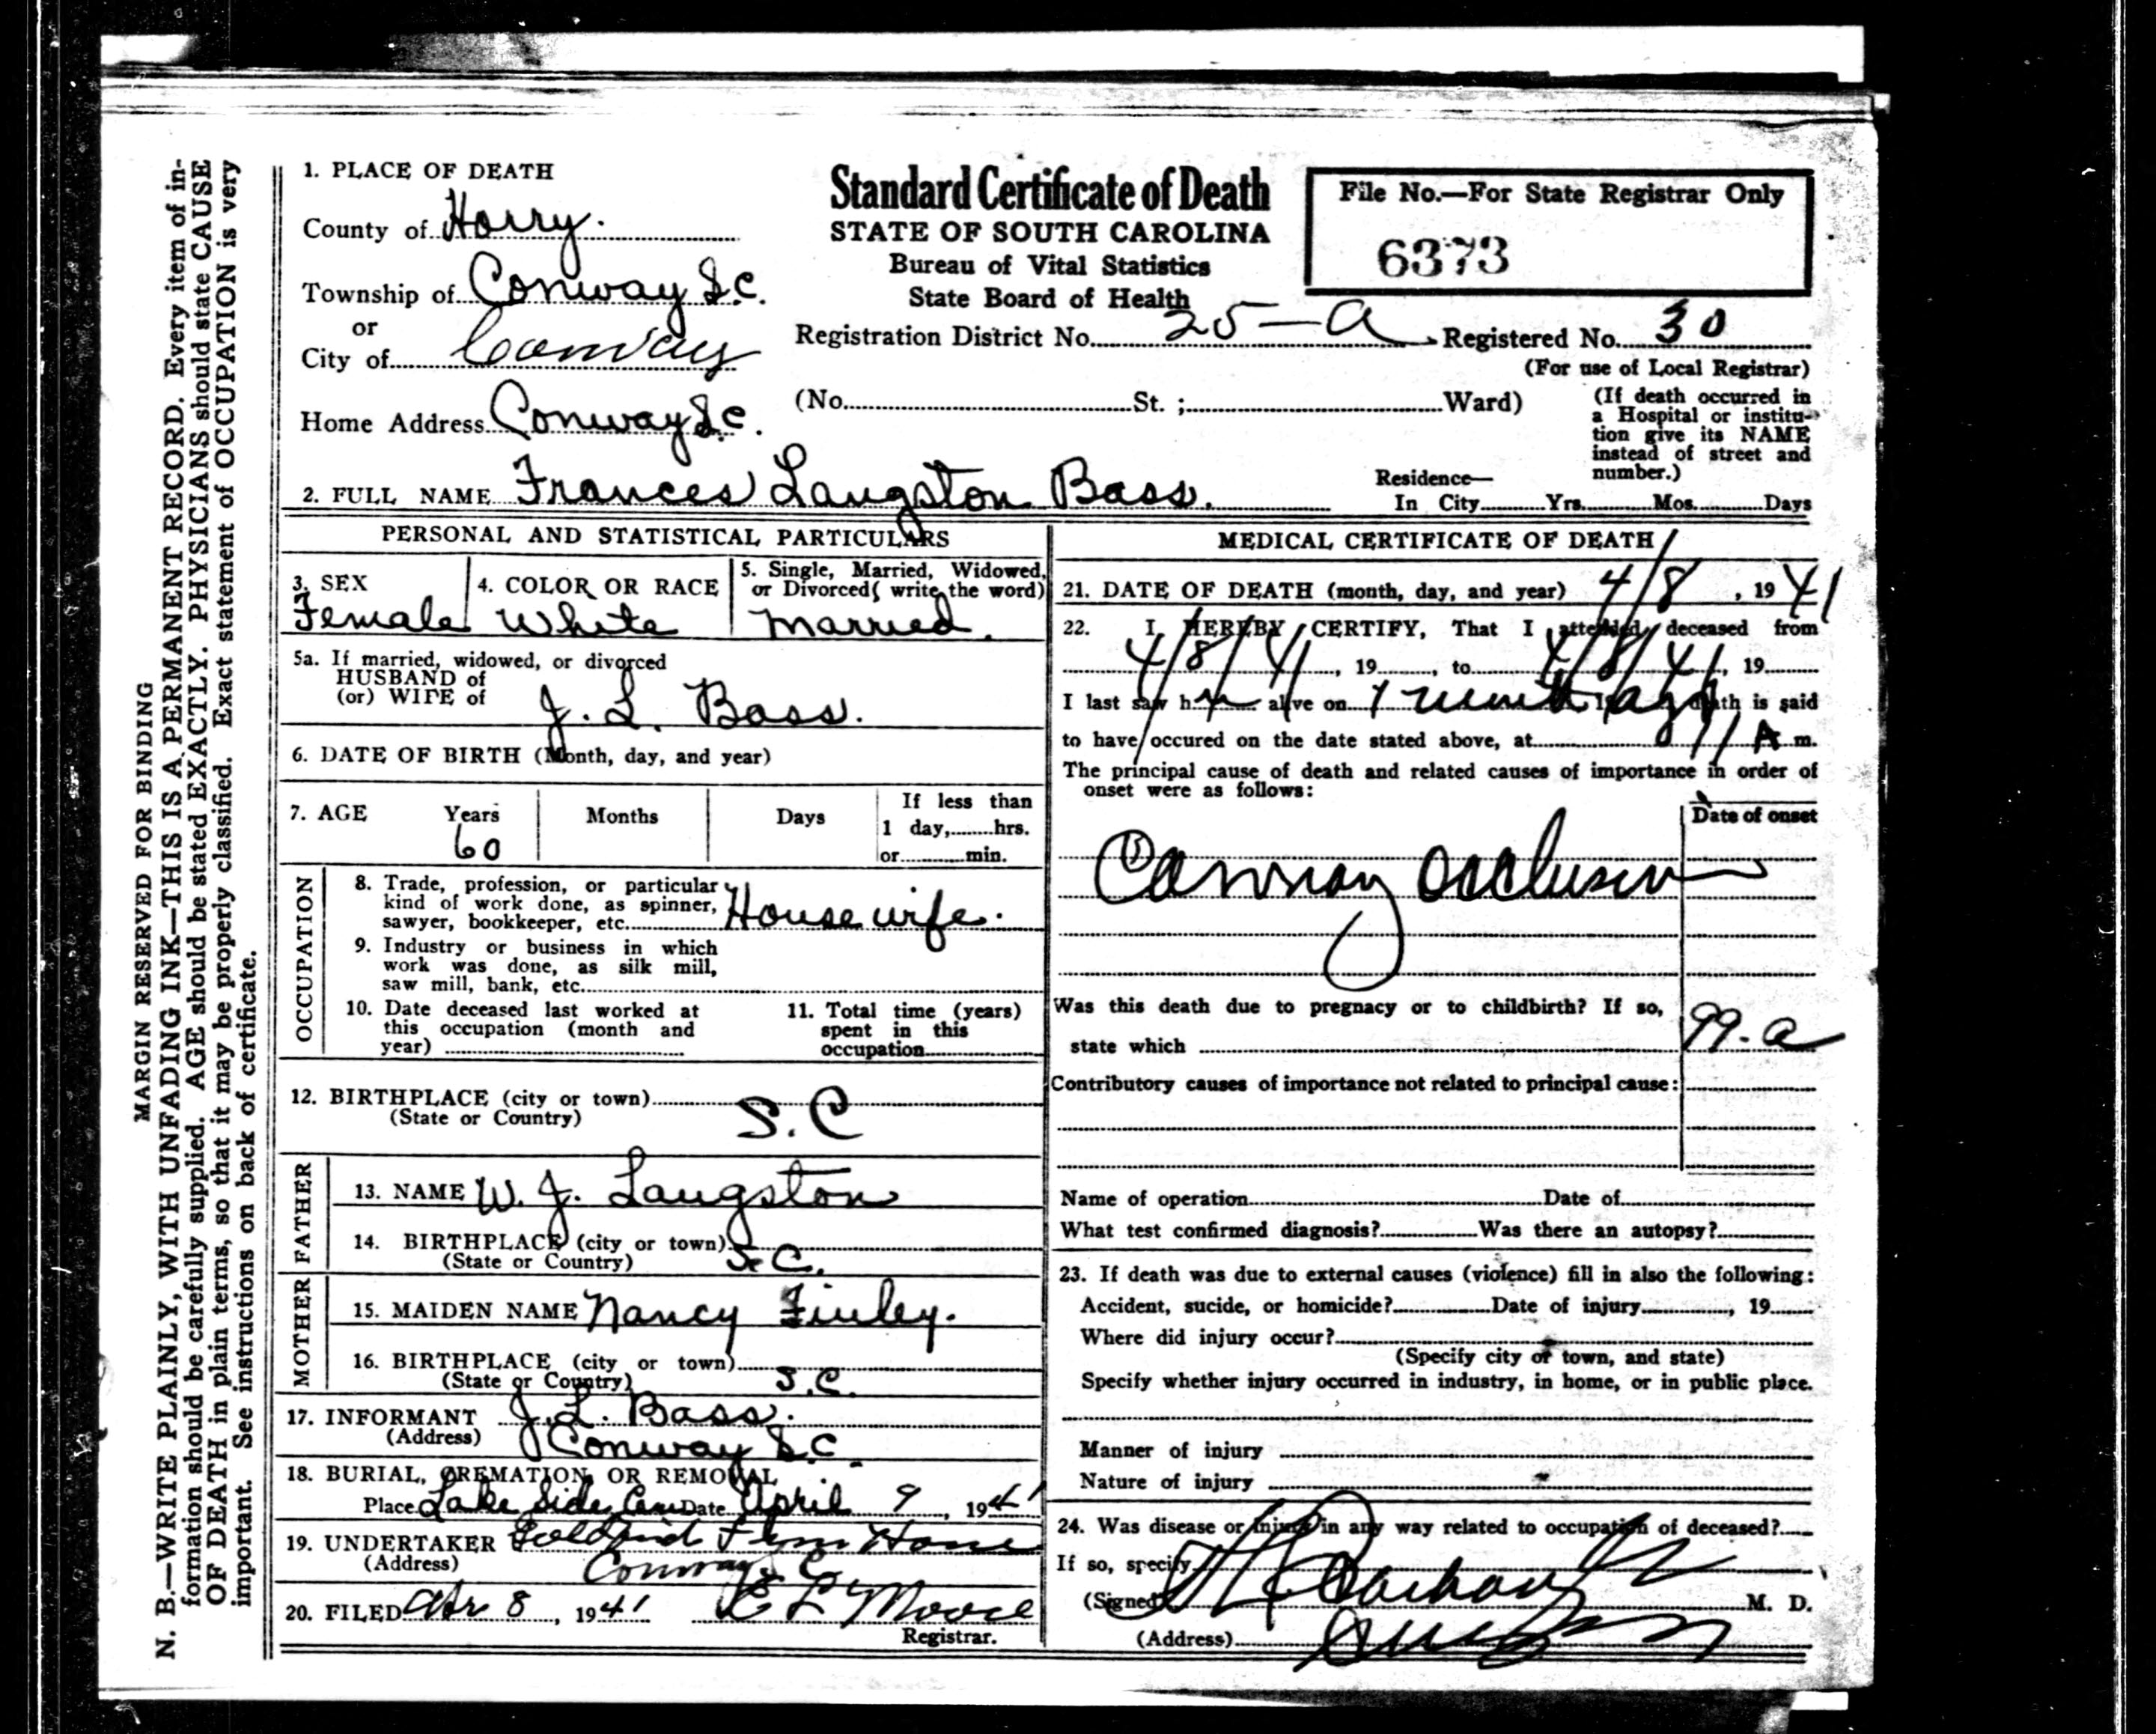 MARGIN RESERVED FOR BINDING
N. B.—WRITE PLAINLY, WITH UNFADING INK—THIS IS A PERMANENT RECORD. Every item of in-
formation should be carefully supplied. AGE should be stated EXACTLY. PHYSICIANS should state CAUSE
OF DEATH in plain terms, so that it may be properly classified. Exact statement of OCCUPATION is very
important. See instructions on back of certificate.
1. PLACE OF DEATH
County of Horry.
Township of Conway S.C.
or
City of Conway
Home Address Conway S.C.
Standard Certificate of Death
STATE OF SOUTH CAROLINA
Bureau of Vital Statistics
State Board of Health
File No.—For State Registrar Only
6373
Registration District No. 25-a Registered No. 30
(For use of Local Registrar)
(No. St. ; Ward)
(If death occurred in
a Hospital or institu-
tion give its NAME
instead of street and
number.)
2. FULL NAME Frances Langston Bass.
Residence—
In City Yrs. Mos. Days
PERSONAL AND STATISTICAL PARTICULARS
3. SEX
Female
4. COLOR OR RACE
White
5. Single, Married, Widowed,
or Divorced( write the word)
Married.
5a. If married, widowed, or divorced
HUSBAND of
(or) WIFE of
J. L. Bass.
6. DATE OF BIRTH (Month, day, and year)
7. AGE Years Months Days
60
If less than
1 day, hrs.
or min.
OCCUPATION
8. Trade, profession, or particular
kind of work done, as spinner,
sawyer, bookkeeper, etc. House wife.
9. Industry or business in which
work was done, as silk mill,
saw mill, bank, etc.
10. Date deceased last worked at
this occupation (month and
year)
11. Total time (years)
spent in this
occupation
12. BIRTHPLACE (city or town)
(State or Country) S.C
FATHER
13. NAME W. J. Langston
14. BIRTHPLACE (city or town)
(State or Country) S.C.
MOTHER
15. MAIDEN NAME Nancy Finley.
16. BIRTHPLACE (city or town)
(State or Country) S.C.
17. INFORMANT J. L. Bass.
(Address) Conway S.C.
18. BURIAL, CREMATION OR REMOVAL
Place Lake Side Cem Date April 9, 1941
19. UNDERTAKER Home
(Address) Conway S C
20. FILED Apr 8, 1941 E L Moore
Registrar.
MEDICAL CERTIFICATE OF DEATH
21. DATE OF DEATH (month, day, and year) 4/8, 1941
22. I HEREBY CERTIFY, That I attended deceased from
4/8/41, 19 to 4/8/41, 19
I last saw h alive on 1 month ago death is said
to have occured on the date stated above, at A m.
The principal cause of death and related causes of importance in order of
onset were as follows:
Date of onset
Coronary occlusion
Was this death due to pregnacy or to childbirth? If so,
state which
99-a
Contributory causes of importance not related to principal cause:
Name of operation Date of
What test confirmed diagnosis? Was there an autopsy?
23. If death was due to external causes (violence) fill in also the following:
Accident, sucide, or homicide? Date of injury , 19
Where did injury occur?
(Specify city or town, and state)
Specify whether injury occurred in industry, in home, or in public place.
Manner of injury
Nature of injury
24. Was disease or injury in any way related to occupation of deceased?
If so, specify
(Signed) M. D.
(Address)